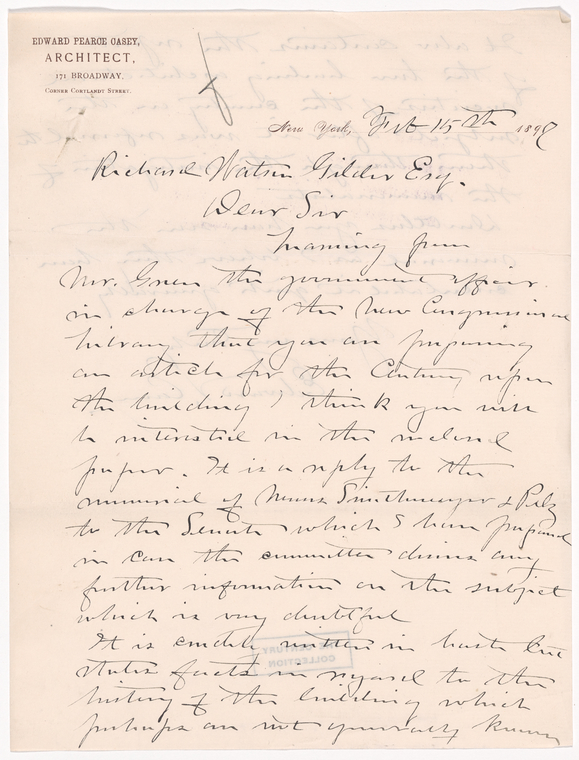 EDWARD PEARCE CASEY,
ARCHITECT,
171 BROADWAY,
CORNER CORTLANDT STREET.
New York, Feb 15th 1897
Richard Watson Gilder Esq.
Dear Sir
Learning from
Mr. Green the government officer
in charge of the New Congressional
Library that you are preparing
an article for the Century upon
the building I think you will
be interested in the enclosed
paper. It is a reply to the
memorial of Messrs Smithmeyer & Pelz
to the Senate which I have prepared
in case the committee desires any
further information on the subject
which is very doubtful
It is crudely written in haste but
states facts in regard to the
history of the building which
perhaps are not generally known
THE CENTURY
COLLECTION